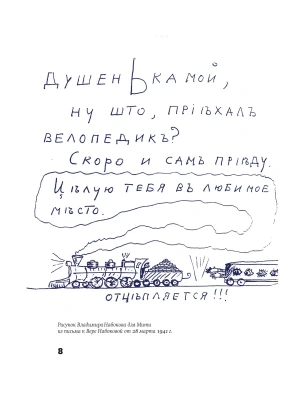 ДУШЕНЬКА МОЙ,
НУ ШТО, ПРІѢХАЛЪ
ВЕЛОПЕДИКЪ?
СКОРО И САМЪ ПРІѢДУ.
ЦѢЛУЮ ТЕБЯ ВЪ ЛЮБИМОЕ
МѢСТО.
ОТЦѢПЛЯЕТСЯ!!!
Рисунок Владимира Набокова для Мити
из письма к Вере Набоковой от 28 марта 1941 г.
8